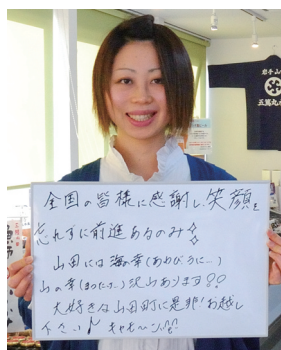 全国の皆様に感謝し、笑顔を
忘れずに前進あるのみ✧
山田には海の幸(あわびうに…)
山の幸(まつたけ…)沢山あります!!
大好きな山田町に是非!お越し
下さい
岩手山
五篤丸